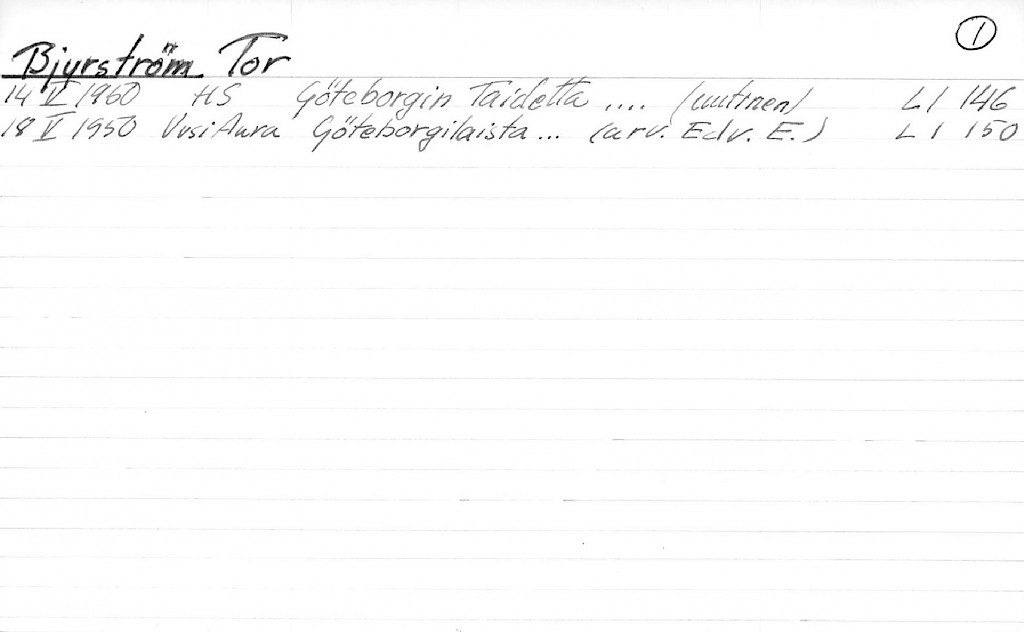 1
Bjyrström Tor
14 V 1960 HS Göteborgin Taidetta .... (uutinen) L1 146
18 V 1950 Uusi Aura Göteborgilaista ... (arv. Edv. E.) L1 150